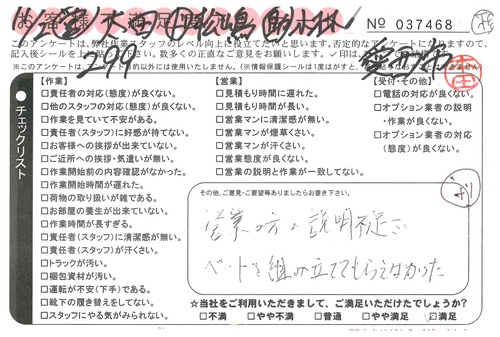 お客様
№ 037468
このアンケートは、弊社作業スタッフのレベル向上に役立てたいと思います。否定的なアンケートになりますので、
記入後シールを上から
ます。数多くの正直なご意見をお願いします。✓印は、
※このアンケートは
目的以外には使用いたしません。(※情報保護シールは1度がはすと、
299
チェックリスト
【作業】
□責任者の対応(態度)が良くない。
□他のスタッフの対応(態度)が良くない。
□作業を見ていて不安がある。
□責任者(スタッフ)に好感が持てない。
□お客様への挨拶が出来ていない。
□ご近所への挨拶・気遣いが無い。
□作業開始前の内容確認がなかった。
□作業開始時間が遅れた。
□荷物の取り扱いが雑である。
□お部屋の養生が出来ていない。
□作業時間が長すぎる。
□責任者(スタッフ)に清潔感が無い。
□責任者(スタッフ)が汗くさい。
□トラックが汚い。
□梱包資材が汚い。
□運転が不安(下手)である。
□靴下の履き替えをしてない。
□スタッフにやる気がみられない。
【営業】
□見積もり時間に遅れた。
□見積もり時間が長い。
□営業マンに清潔感が無い。
□営業マンが煙草くさい。
□営業マンが汗くさい。
□営業態度が良くない。
□営業の説明と作業が一致してない。
【受付・その他】
□電話の対応が良くない。
□オプション業者の説明
・作業が良くない。
□オプション業者の対応
(態度)が良くない。
その他、ご意見・ご要望等ありましたらお書き下さい。
営業の方の説明不足で
ベットを組み立ててもらえなかった
☆当社をご利用いただきまして、ご満足いただけたでしょうか?
□不満 □やや不満 □普通 □やや満足 □満足